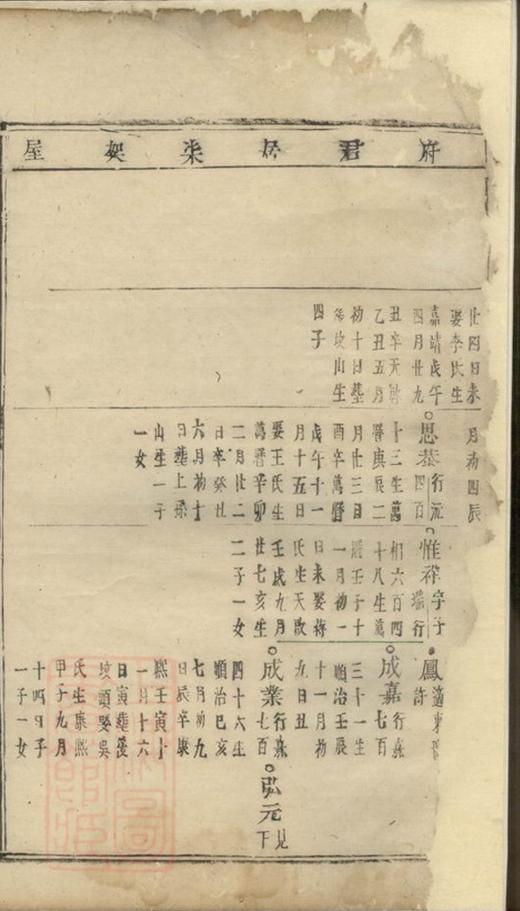 府君居柒架屋
廿四日未
娶李氏生
嘉靖戊午
四月廿九
丑卒天啟
乙丑五月
初十日塟
坟山生
四子
月初四辰
思恭行元四百
十三生萬
曆庚辰二
月廿三日
酉卒萬曆
戊午十一
月十五日
娶王氏生
萬曆辛卯
二月廿二
日卒癸丑
六月初十
日塟上
山生一子
一女
惟祥字子行
相六百四
十八生萬
曆壬子十
一月初一
日未娶
氏生天啟
壬戌九月
廿七亥生
二子一女
鳳適東
許
成嘉行森七百
三十一生
順治壬辰
十一月初
九日丑
成業行森七百
四十六生
順治己亥
七月初九
日辰卒康
熙壬寅十
一月十六
日寅塟後
坟頭娶吳
氏生康熙
甲子九月
十四日子
一子一女
弘元見下